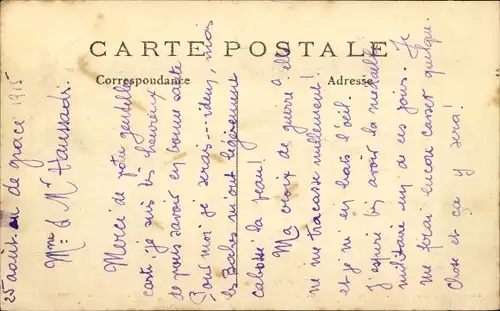 CARTE POSTALE
Correspondance
Adresse
25 août an de grace 1915
Mme & Mr
Merci de votre gentille
carte je suis très heureux
de vous savoir en bonne santé
Pour moi je serais... idem, mais
les Balos m'ont légèrement
cabossé la peau!
Ma croix de guerre? elle
ne me tracasse nullement!
et j'ai en biais l'œil.
J'espère bien avoir la médaille
militaire un de ces jours. Je
me ferai encore casser quelque
chose et ça y sera!